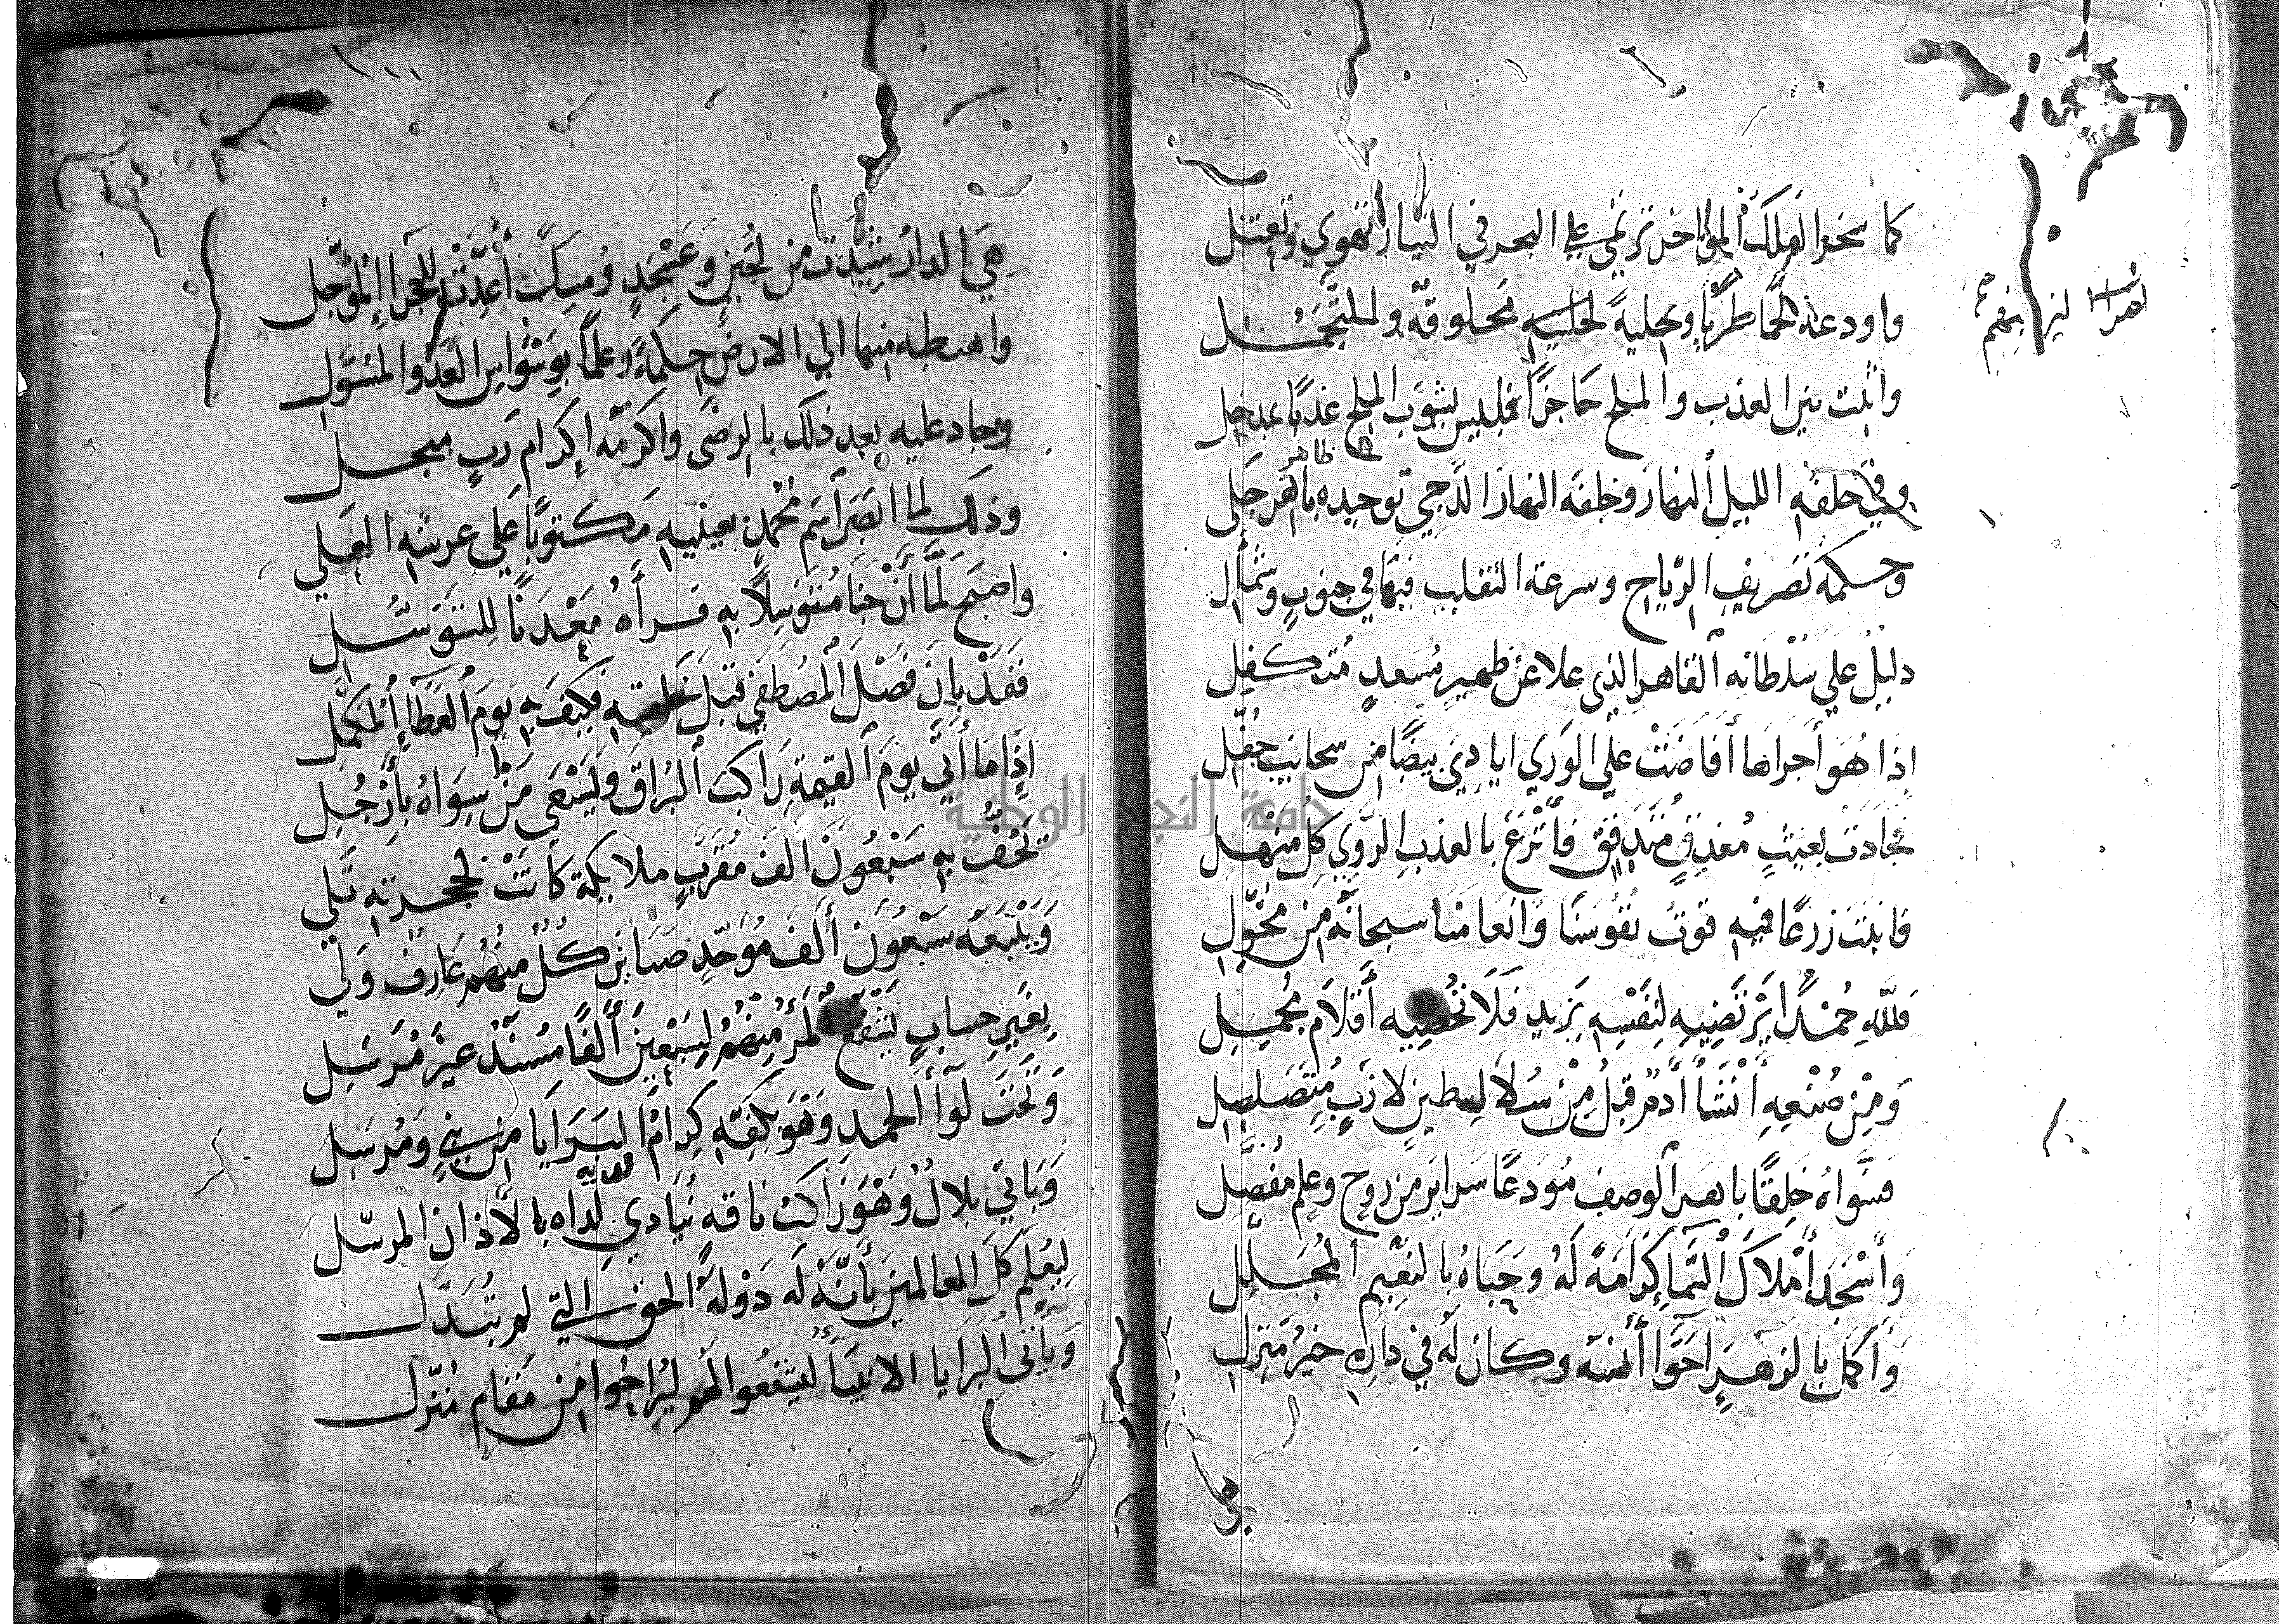 كما سخر الفلك المواخر ترتمي على البحر في التيار تهوي وتعتلي
واودعه لحما طريا وحلية لحلية مخلوقة والتجمل
واثبت بين العذب والملح حاجزا فليس يشوب الملح عذبا بمدخل
ظاهر
وفي خلفه الليل النهار وخلفه النهار الدجي توحيده باهر جلي
وحكمة تصريف الرياح وسرعة التقلب فيها في جنوب وشمأل
دليل علي سلطانه القاهر الذي علا عن ظهير مسعد متكفل
اذا هو أجراها أفاضت علي الوري ايادي بيضا من سحائب حفل
فجادت بغيث مغدق متدفق فأترع بالعذب الروي كل منهل
فانبت زرعا فيه قوت نفوسنا وانعامنا سبحانه من مخول
فلله حمدا يرتضيه لنفسه يزيد فلا تحصيه أقلام مجمل
ومن صنعه أنشأ أدم قبل من سلالة طين لازب متصلصل
فسواه خلقا باهر الوصف مودعا سراير من روح وعلم مفصل
وأسجد أملاك السما كرامة له وحباه بالنعيم المجلل
واكمل بالزهراء حوا أنسه وكان له في داره خير منزل
هي الدار شيدت من لجين وعسجد ومسك أعدت للجزا المؤجل
واهبطه منها الي الارض حكمة وعلما بوسواس العدو المسول
وجاد عليه بعد ذلك بالرضى واكرمه اكرام رب مبجل
وذلك لما ابصر أسم محمد بعينيه مكتوبا على عرشه العلي
واصبح لما أن جنا متوسلا به فرأه معدنا للتوسل
فقد بان فضل المصطفي قبل خلقه فكيف به يوم العطاء المكمل
إذا ما أتي يوم القيمة راكب البراق ويسعى من سواه بأرجل
تحف به سبعون الف مقرب ملايكة كانت لحجرته تلي
ويتبعه سبعون ألف موحد صابر كل منهم عارف ولي
بغير حساب يشفع لمر منهم لسبعين ألفا مسند غير مرسل
وتحت لوأ الحمد وهو بكفه كرام البرايا من نبي ومرسل
وياتي بلال وهو راكب ناقة ينادي لداه بالأذان المرسل
ليعلم كل العالمين بأنه له دولة الحق التي لم تبدل
وياتي البرايا الانبيأ ليشفعوا لهم ليراحوا من مقام منزل